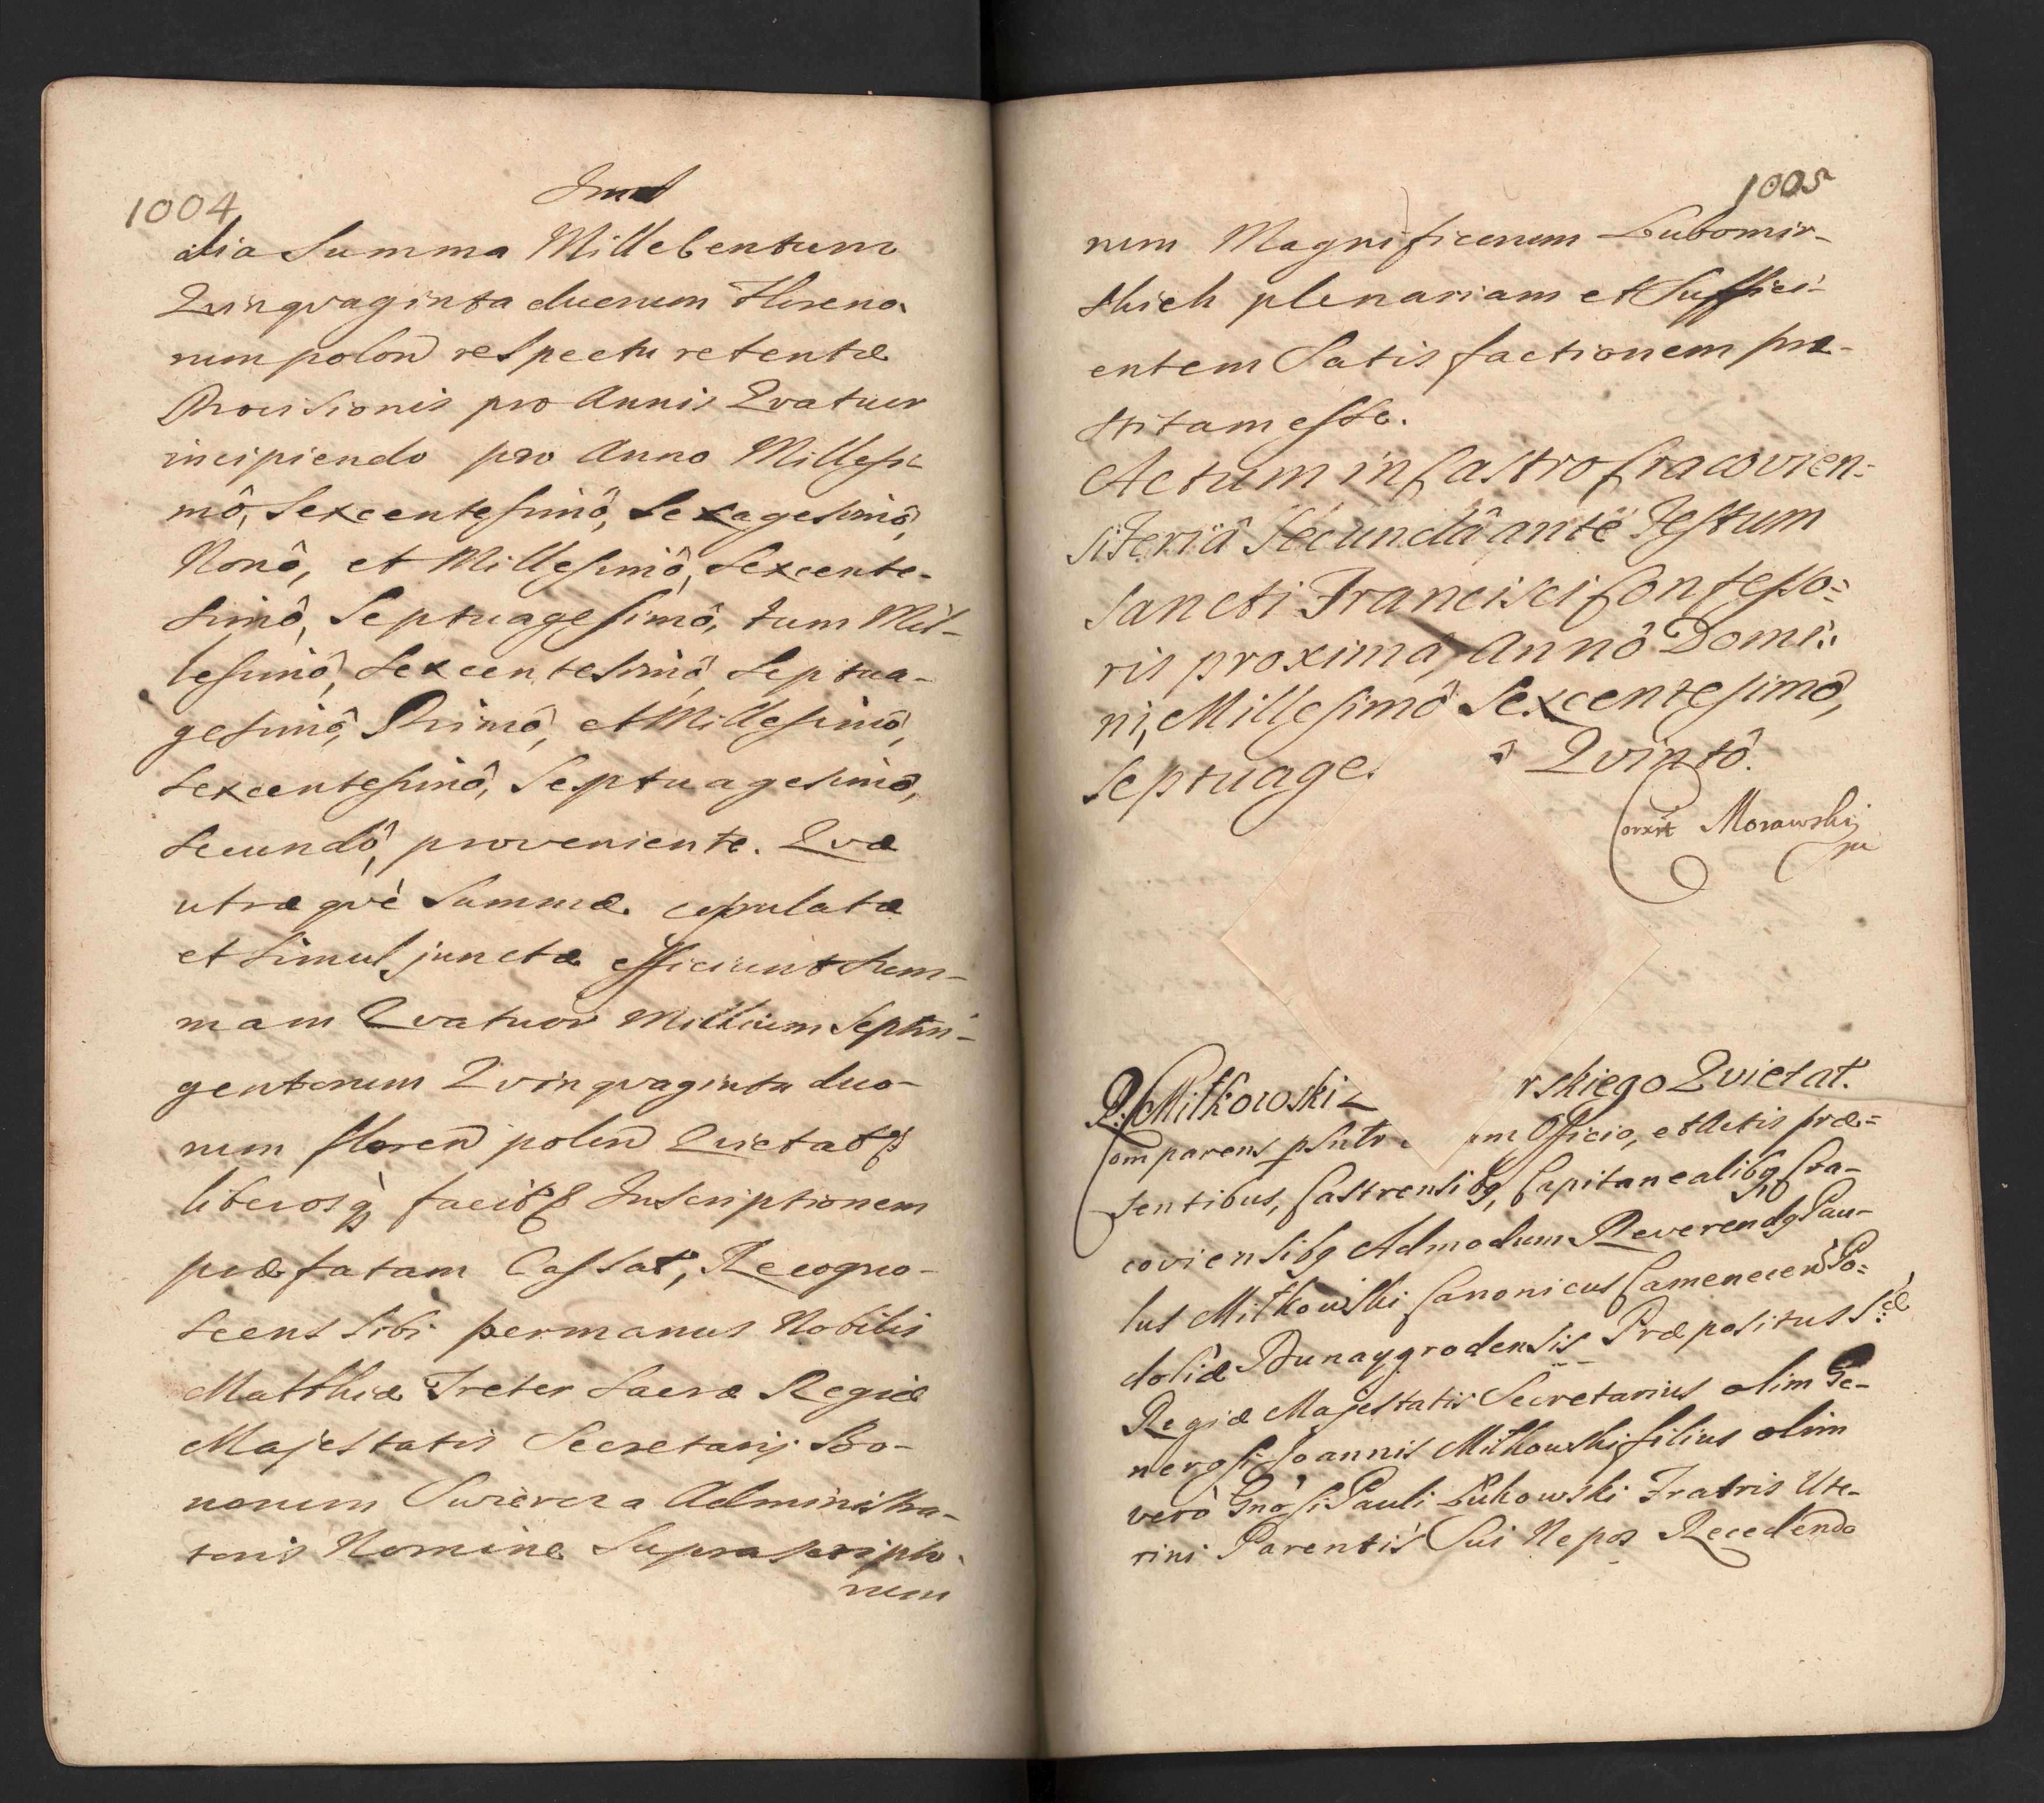 1004
alia Summa Mille Centum
Qvinqvaginta duorum Floreno-
rum polon respectu retentæ
Provisionis pro Annis Qvatuor
incipiendo pro Anno Millesi-
mô, Sexcentesimô, Sexagesimô,
Nonô, et Millesimô, Sexcente-
simô, Septuagesimô, tum Mil-
lesimô, Sexcentesimô, Septua-
gesimô, Primô, et Millesimô,
Sexcentesimô, Septuagesimô,
Secundô, proveniente. Qvæ
utræqvè Summæ copulatæ
et simul junctæ efficiunt Sum-
mam Qvatuor Millium Septin-
gentorum Qvinqvaginta duo-
rum floren polon Qvietat
liberosq facit Inscriptionem
præfatam Cassat, Recogno-
scens sibi per manus Nobilis
Matthiæ Treter Sacræ Regiæ
Majestatis Secretarij Bo-
norum Administra-
toris Nomine Suprascripto-
rum
1005
rum Magnificorum Lubomir-
skich plenariam et Suffici-
entem Satisfactionem præ-
stitam esse.
Actum in Castro Cracovien-
si Feriâ Secundâ ante Festum
Sancti Francisci Confesso-
ris proximâ, Annô Domi-
ni, Millesimô Sexcentesimô,
Septuage ô Qvintô.
Corxit Morawski
mp
P. Miłkowski z rskiego Qvietat.
Comparens psntr um Officio, et Actis præ-
sentibus, Castrensibq, Capitanealibq Cra-
coviensibq Admodum Reverendq Pau-
lus Miłkowski Canonicus Camenecen Po-
doliæ Dunaygrodensis Præpositus S:æ
Regiæ Majestatis Secretarius olim Ge-
nerosi Joannis Miłkowski filius olim
verò Gnosi Pauli Łukowski Fratris Ute-
rini Parentis Sui Nepos Recedendo